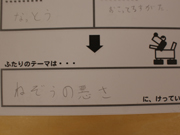 なっとう
ふたりのテーマは・・・
ねぞうの悪さ
に、けってい